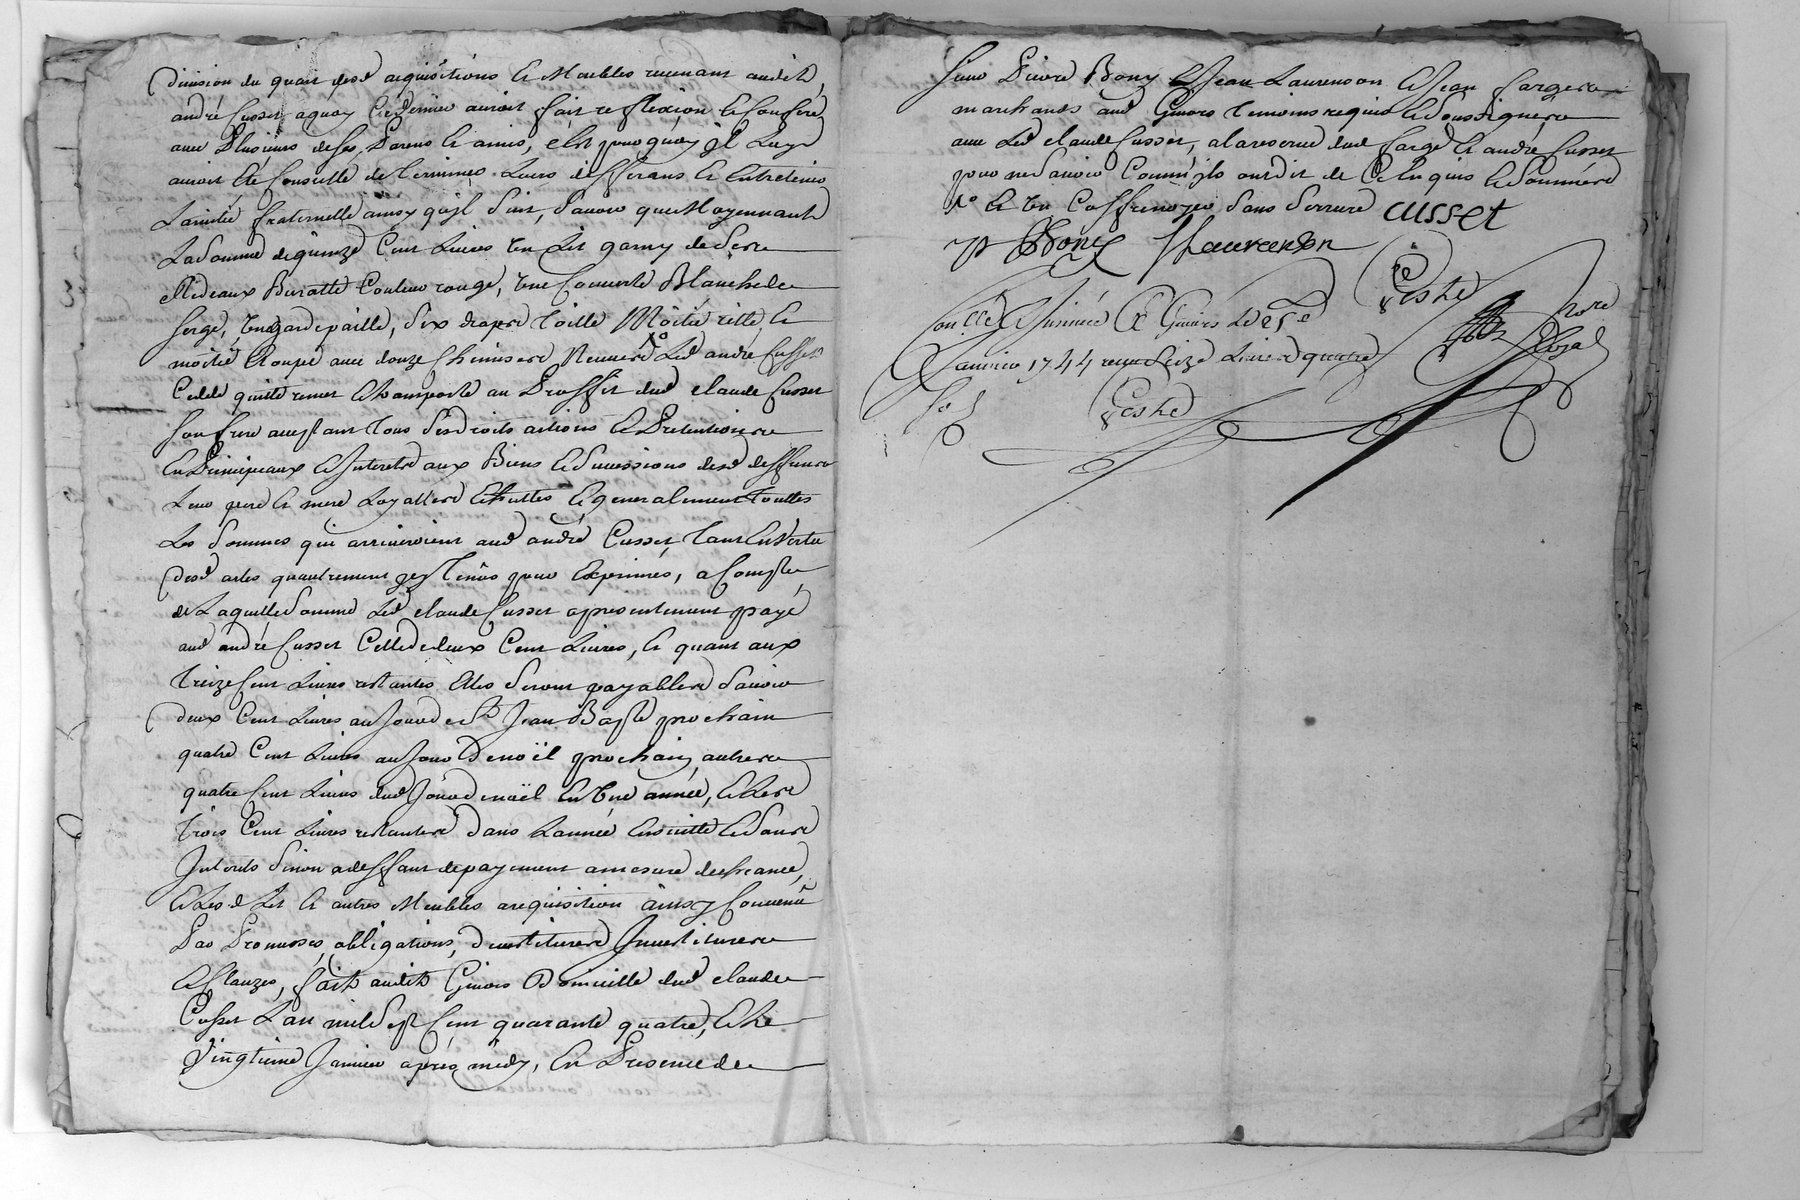 division du quart desd acquisitions et Meubles revenant audit
andré Cusset aquoy Ce dernier auroit fait reflexion et Conferé
avec Plusieurs de ses Parens et amis, c'est pourquoy jl Luy
auroit été Conseillé de terminer Leurs differans et Entretenir
L'amitié fraternelle ainsy qu'jl suit, sauoir que Moyennant
La somme de quinze Cent Livres un Lit garny de ses
Rideaux Buratte Couleur rouge, une Couverte Blanche de
serge, un gardepaille, six draps de toille Moitié ritte, et
moitié Etoupe avec douze Chemises Neuves Led andré Cusset
Cedde quitte remet et transporte au Proffit dud claude Cusset
son frere acceptant tous ses droits actions et Pretentions
En Principeaux et Interets aux Biens et successions desd deffunts
Leur pere et mere Loyalles Echuttes et generalement touttes
Les sommes qui arriveroient aud andré Cusset, tant En Vertu
desd actes qu'autrement jcy tenus pour Exprimés, a Compte
de Laquelle somme Led claude Cusset a presentement payé
aud andré Cusset Celle de deux Cent Livres, et quant aux
treize Cent Livres restantes Elles seront payables sauoir
deux Cent Livres au Jour de st Jean Bapte prochain
quatre Cent Livres au Jour de noël prochain, autres
quatre Cent Livres dud Jour de noël En une année, et Les
trois Cent Livres restantes dans L'année Ensuitte et sans
Interets sinon a deffaut de payement a mesure d'echeance,
et Led Lit et autres Meubles a requisition ainsy Convenu
Par Promesses, obligations, devestitures Jnvestitures
et Clauzes, fait audit Givors Domicille dud claude
Cusset L'an mil sept Cent quarante quatre, et Le
Vingtieme Janvier après midy, En Presence de
sieur Pierre Bony et Jean Laurenson et Jean farge
marchands aud Givors temoins requis et soussignés
avec Led claude Cusset, a la reserve dud farge et andré Cusset
pour ne sauoir Comm'jls ont dit de Ce Enquis et sommés
+o et un Coffre noyer sans serrure CUSSET
JP Bony J Laurenson
Conllé et Jnsinué a Givors Le 21e
Janvier 1744 reçu seize Livres quatre
s